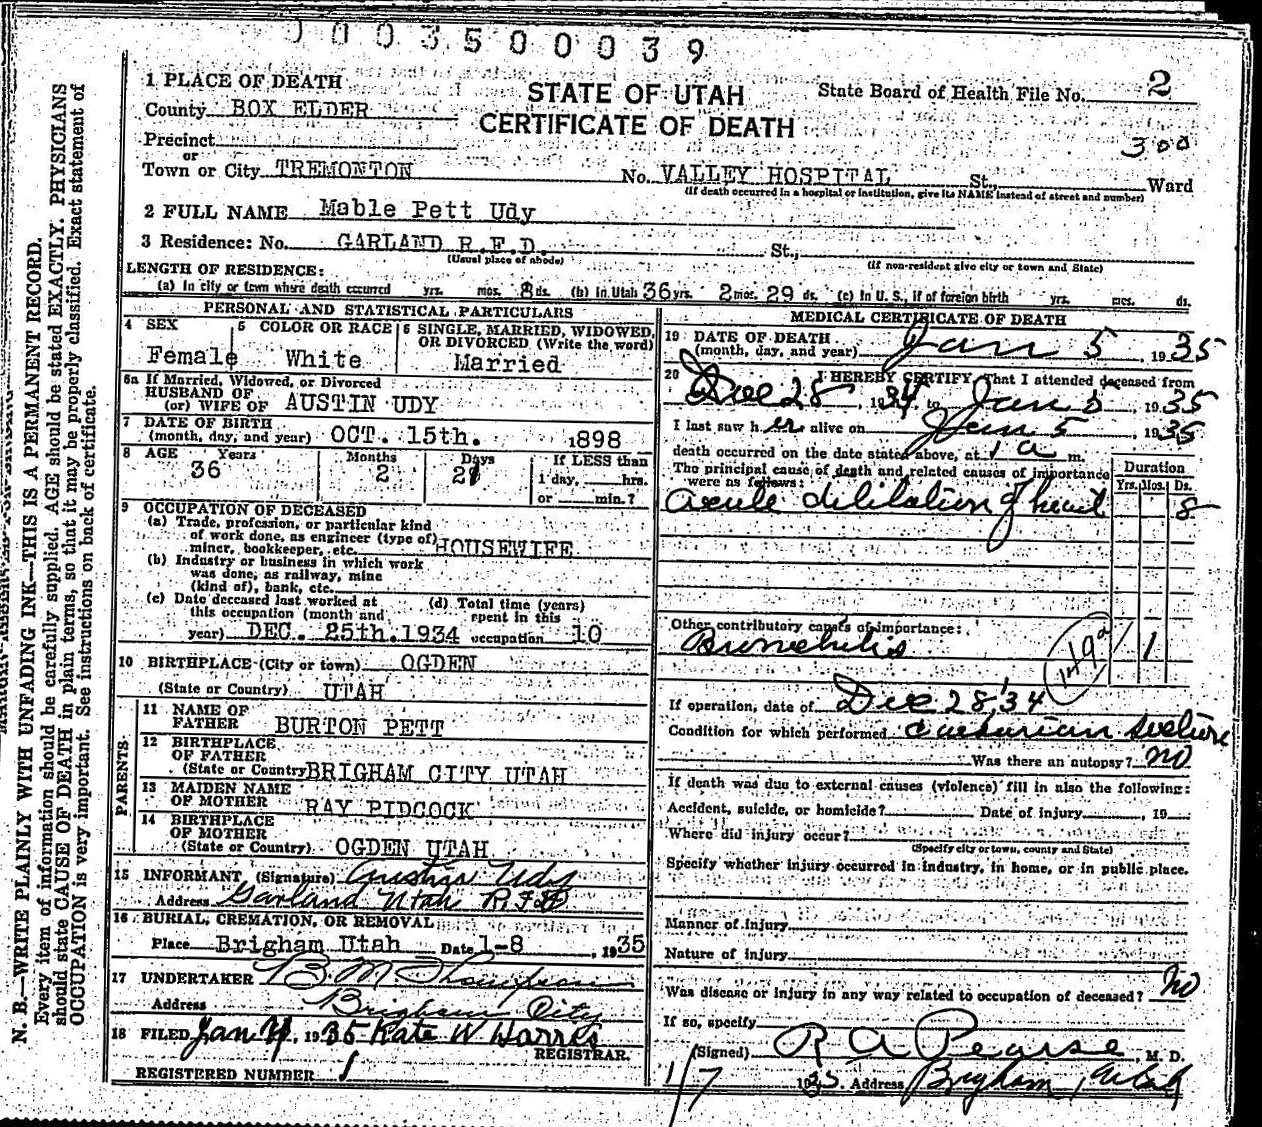 0003500039
1 PLACE OF DEATH
STATE OF UTAH
CERTIFICATE OF DEATH
State Board of Health File No. 2
County BOX ELDER
300
Precinct
or
Town or City TREMONTON No. VALLEY HOSPITAL St., Ward
(If death occurred in a hospital or institution, give its NAME instead of street and number)
2 FULL NAME Mable Pett Udy
3 Residence: No. GARLAND R.F.D. St.,
(Usual place of abode) (If non-resident give city or town and State)
LENGTH OF RESIDENCE:
(a) In city or town where death occurred yrs. mos. 8 ds. (b) In Utah 36 yrs. 2 mos. 29 ds. (c) In U. S., if of foreign birth yrs. mos. ds.
PERSONAL AND STATISTICAL PARTICULARS
4 SEX Female
5 COLOR OR RACE White
6 SINGLE, MARRIED, WIDOWED, OR DIVORCED (Write the word) Married
6a If Married, Widowed, or Divorced
HUSBAND OF
(or) WIFE OF AUSTIN UDY
7 DATE OF BIRTH
(month, day, and year) OCT. 15th. 1898
8 AGE Years Months Days If LESS than
36 2 21 1 day, hrs.
or min.?
9 OCCUPATION OF DECEASED
(a) Trade, profession, or particular kind
of work done, as engineer (type of)
miner, bookkeeper, etc. HOUSEWIFE
(b) Industry or business in which work
was done, as railway, mine
(kind of), bank, etc.
(c) Date deceased last worked at (d) Total time (years)
this occupation (month and spent in this
year) DEC. 25th. 1934 occupation 10
10 BIRTHPLACE (City or town) OGDEN
(State or Country) UTAH
PARENTS
11 NAME OF
FATHER BURTON PETT
12 BIRTHPLACE
OF FATHER
(State or Country) BRIGHAM CITY UTAH
13 MAIDEN NAME
OF MOTHER RAY PIDCOCK
14 BIRTHPLACE
OF MOTHER
(State or Country) OGDEN UTAH
15 INFORMANT (Signature) Austin Udy
Address Garland Utah R F D
16 BURIAL, CREMATION, OR REMOVAL
Place Brigham Utah Date 1-8, 1935
17 UNDERTAKER B. M. Thompson
Address Brigham City
18 FILED Jan 4, 1935 Kate W Harris
REGISTRAR.
REGISTERED NUMBER 1
MEDICAL CERTIFICATE OF DEATH
19 DATE OF DEATH
(month, day, and year) Jan 5, 1935
20 I HEREBY CERTIFY, That I attended deceased from
Dec 28, 1934, to Jan 5, 1935
I last saw her alive on Jan 5, 1935
death occurred on the date stated above, at 1 a m.
The principal cause of death and related causes of importance
were as follows:
Duration
Yrs. Mos. Ds.
acute dilitation of heart 8
Other contributory causes of importance:
Bronchitis 1
149a
If operation, date of Dec 28 '34
Condition for which performed caesarian section
Was there an autopsy? no
If death was due to external causes (violence) fill in also the following:
Accident, suicide, or homicide? Date of injury , 19
Where did injury occur?
(Specify city or town, county and State)
Specify whether injury occurred in industry, in home, or in public place.
Manner of injury
Nature of injury
Was disease or injury in any way related to occupation of deceased? No
If so, specify
(Signed) R A Pearse, M. D.
1/7 1935. Address Brigham, Utah
N. B.—WRITE PLAINLY WITH UNFADING INK—THIS IS A PERMANENT RECORD.
Every item of information should be carefully supplied. AGE should be stated EXACTLY. PHYSICIANS
should state CAUSE OF DEATH in plain terms, so that it may be properly classified. Exact statement of
OCCUPATION is very important. See instructions on back of certificate.